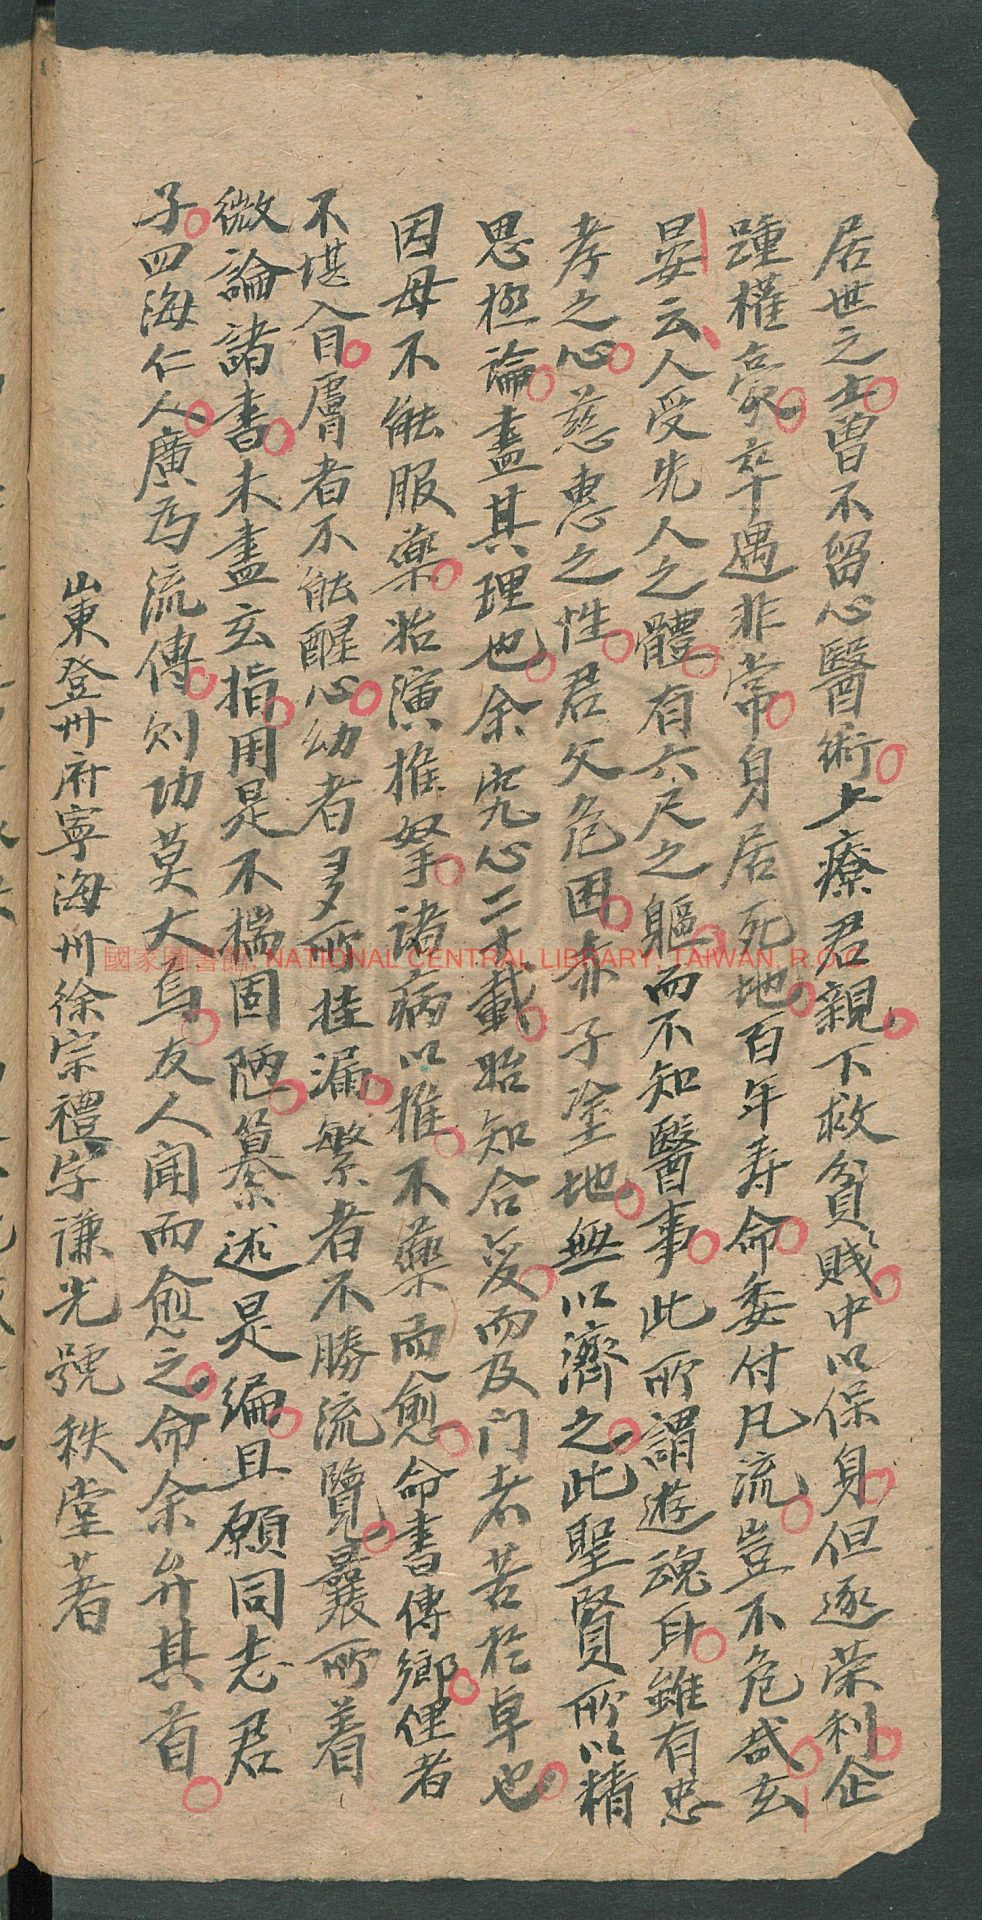 居世之士曾不留心醫術上療君親下救貧賤中以保身但逐荣利企
踵權豪卒遇非常身居死地百年寿命委付凡流豈不危哉玄
晏云人受先人之體有六尺之軀而不知醫事此所謂遊魂耳雖有忠
孝之心慈惠之性君父危困赤子塗地無以濟之此聖賢所以精
思極論盡其理也余究心二十載始知合爰而及门者苦於卓也
因母不能服藥始演推拏諸病以推不藥而愈命書傳鄉俚者
不堪入目膚者不能醒心幼者多所挂漏繁者不勝流覽曩所着
微論諸書未盡玄指用是不揣固陋纂述是編且願同志君
子四海仁人廣为流傳则功莫大焉友人聞而愈之命余弁其首
山東登州府寧海州徐宗禮字谦光號秩堂著
國家圖書館, NATIONAL CENTRAL LIBRARY, TAIWAN, R.O.C